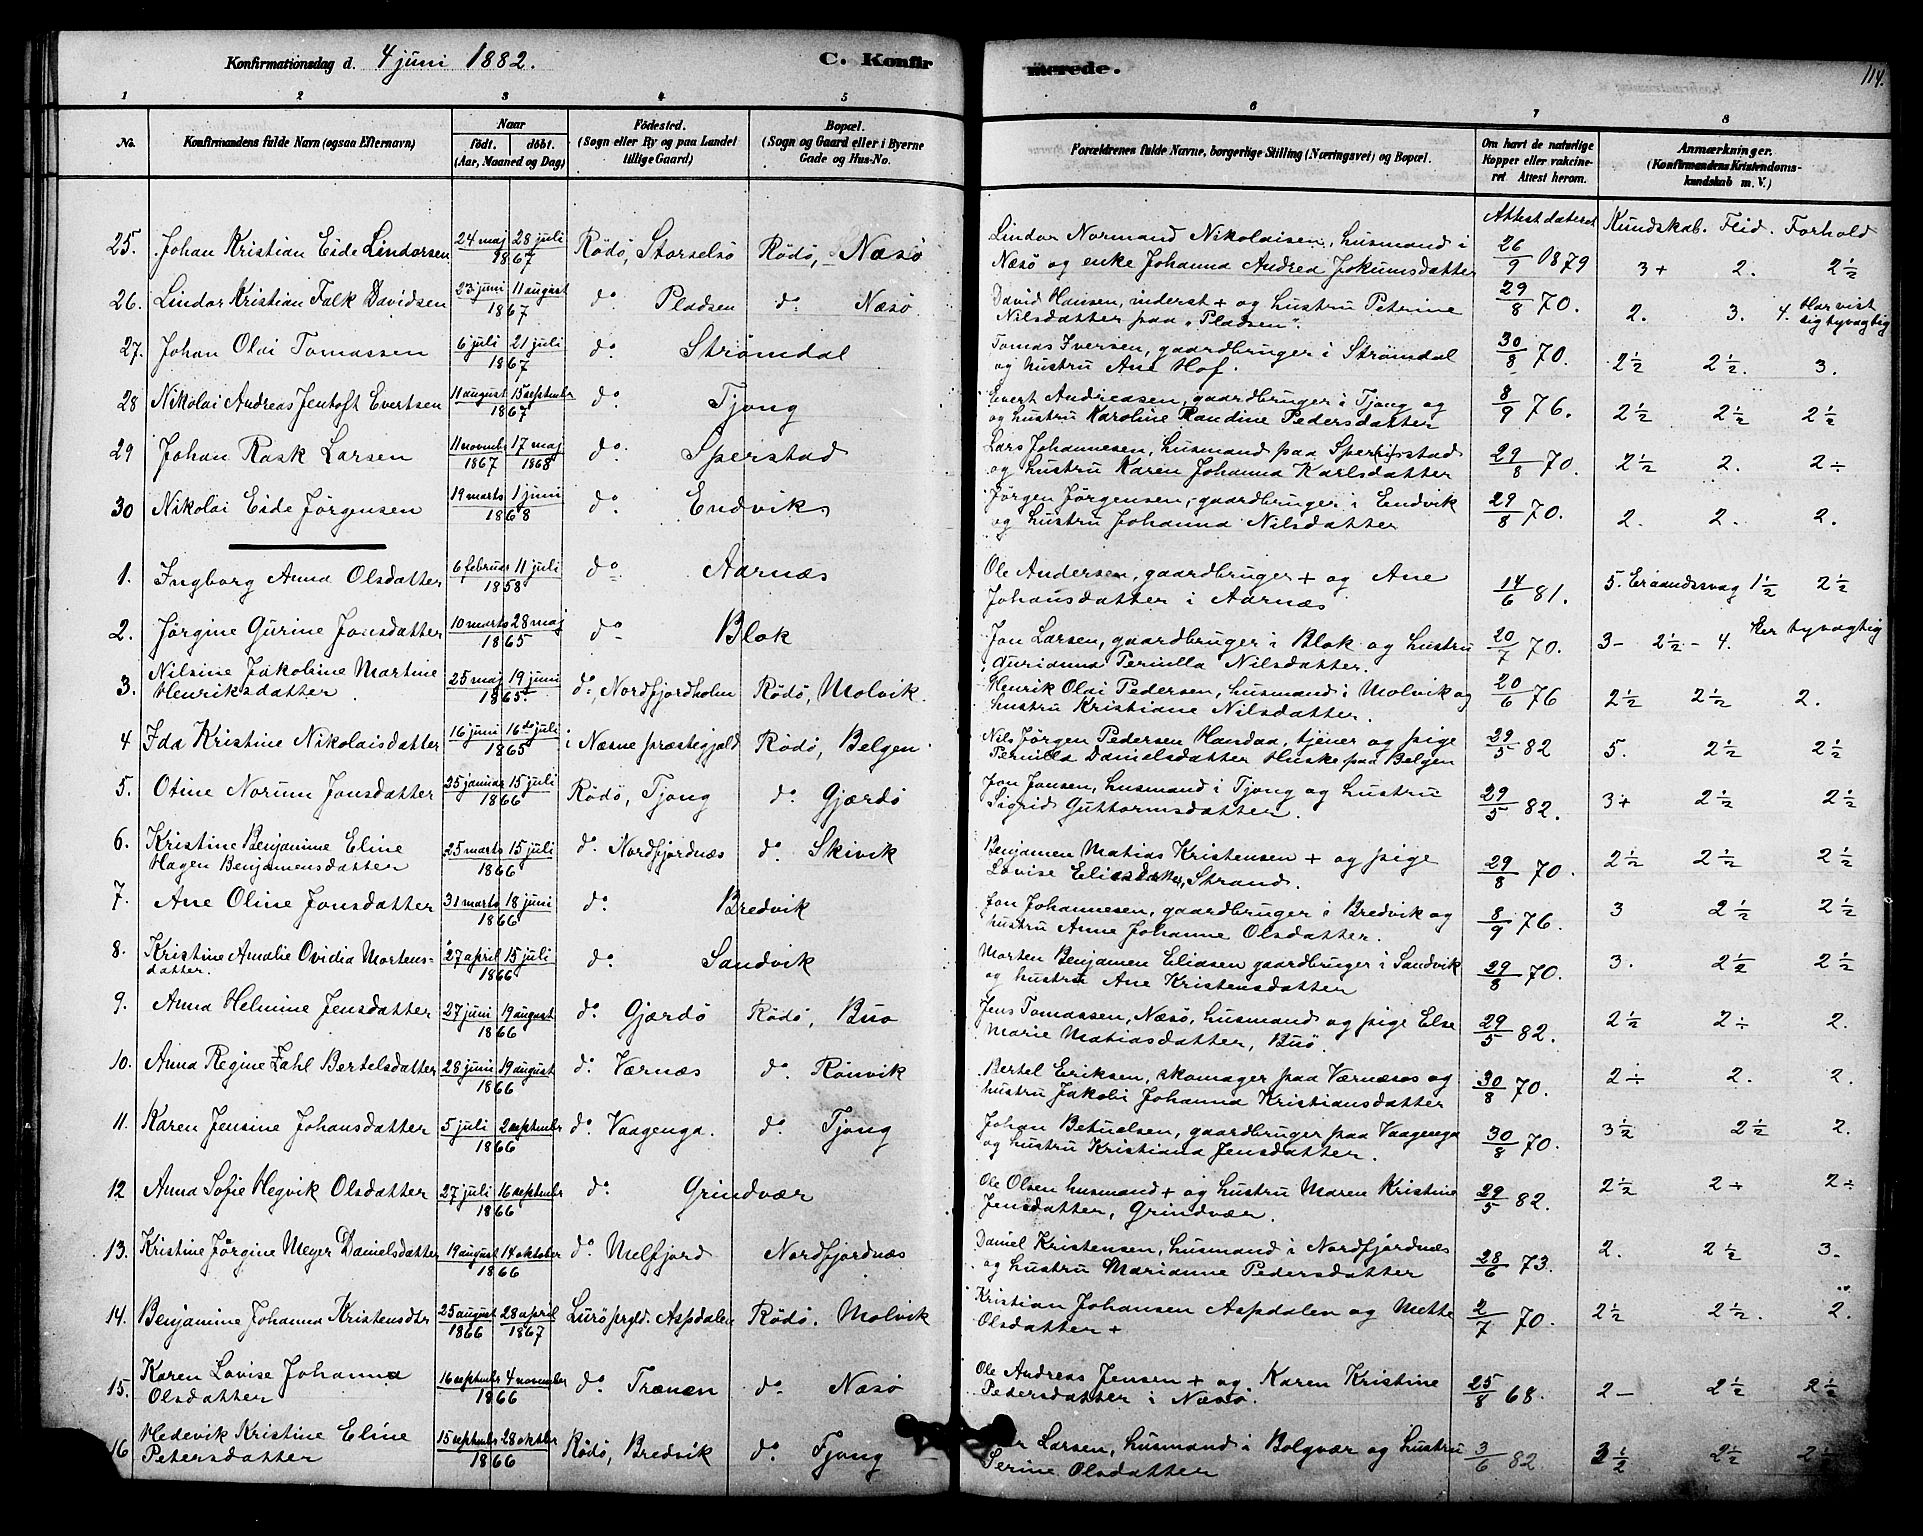 Konfirmationsdag d. 4 juni 1882. C. Konfirmerede. 114.
1 2 3 4 5 6 7 8
No. Konfirmandens fulde Navn (ogsaa Efternavn) Naar födt. döbt. (Aar, Maaned og Dag) Födested. (Sogn eller By og paa Landet tillige Gaard) Bopæl. (Sogn og Gaard eller i Byerne Gade og Hus-No. Forældrenes fulde Navne, borgerlige Stilling (Næringsvei) og Bopæl. Om havt de naturlige Kopper eller vakcineret Attest herom. Anmærkninger. (Konfirmandens Kristendomskundskab m. V.)
Attest dateret Kundskab. Flid. Forhold
25. Johan Kristian Eide Lindorsen 24 maj 28 juli 1867 Rödö, Storselsö Rödö, Næsö Lindor Normand Nikolaisen, husmand i
Næsö og enke Johanna Andrea Jokumsdatter 26/9 1879 3+ 2. 2½
26. Lindor Kristian Falk Davidsen 23 juni 11 august 1867 do Pladsen do Næsö David Hansen, inderst + og hustru Petrine
Nilsdatter paa "Pladsen". 29/8 70. 2. 3. 4. Har vist sig tyvagtig
27. Johan Olai Tomassen 6 juli 21 juli 1867 do Strömdal Tomas Iversen, gaardbruger i Strömdal
og hustru Ane Hof. 30/8 70. 2½ 2½. 3.
28 Nikolai Andreas Jentoft Evertsen 11 august 15 september 1867 do Tjong Evert Andreasen, gaardbruger i Tjong og
og hustru Karoline Randine Pedersdatter 8/9 76. 2½ 2½ 2½
29 Johan Rask Larsen 11 novembr 1867 17 maj 1868 do Sperstad Lars Johannesen, husmand paa Sperstad
og hustru Karen Johanna Karlsdatter 29/8 70. 2½ 2. 2÷
30 Nikolai Eide Jörgensen 19 marts 1 juni 1868 do Endvik Jörgen Jörgensen, gaardbruger i Endvik
og hustru Johanna Nilsdatter 29/8 70. 2. 2. 2.
1. Ingborg Anna Olsdatter 6 februar 11 juli 1858 do Aarnæs Ole Andersen, gaardbruger + og Ane
Johansdatter i Aarnæs 14/6 81. 5. Er aandssvag 1½ 2½
2. Jörgine Gurine Jonsdatter 10 marts 28 maj 1865 do Blok Jon Larsen, gaardbruger i Blok og hustru
Gurianna Pernilla Nilsdatter. 20/7 70. 3- 2½- 4. Her tyvagtig
3. Nilsine Jakobine Martine
Henriksdatter 25 maj 19 juni 1865 do, Nordfjordholm Rödö, Molvik. Henrik Olai Pedersen, husmand i Molvik og
hustru Kristiane Nilsdatter. 20/6 76 2½ 2½ 2.
4 Ida Kristine Nikolaisdatter 16 juni 16de juli 1865 i Næsne præstegjæld Rödö, Belgen. Nils Jörgen Pedersen Handaa, tjener og pige
Pernilla Danielsdatter Huske paa Belgen 29/5 82 5. 2½ 2½
5. Otine Norum Jonsdatter 25 januar 15 juli 1866 Rödö, Tjong do Gjærdö Jon Jonsen, husmand i Tjong og hustru
Sigrid Guttormsdatter. 29/5 82. 3+ 2½ 2½
6. Kristine Benjamine Eline
Hagen Benjamensdatter 25 marts 15 juli 1866 do Nordfjordnæs do. Skivik Benjamen Matias Kristensen + og pige
Lovise Eliasdatter, Strand. 29/8 70. 2½ 2½ 2½
7. Ane Oline Jonsdatter 31 marts 18 juni 1866 do. Bredvik Jon Johannesen, gaardbruger i Bredvik og
hustru Anne Johanne Olsdatter. 8/9 76. 3 2½ 2½
8. Kristine Amalie Ovidia Mortens-
datter. 27 april 15 juli 1866 do. Sandvik Morten Benjamen Eliasen gaardbruger i Sandvik
og hustru Ane Kristensdatter 29/8 70. 3. 2½ 2½
9. Anna Helmine Jensdatter 27 juni 19 august 1866 do. Gjærdö Rödö, Buo Jens Tomassen, Næsö, husmand og pige Else
Marie Matiasdatter, Buö. 29/5 82. 2½ 2÷ 2.
10. Anna Regine Zahl Bertelsdatter 28 juni 19 august 1866 do. Værnæs do. Rönvik Bertel Eriksen, skomager paa Værnæsos og
hustru Jakobi Johanna Kristiansdatter 30/8 70. 2÷ 2. 2.
11. Karen Jensine Johansdatter 5 juli 2 september 1866 do. Vaagenga. do. Tjong Johan Betuelsen, gaardbruger paa Vaagenga
og hustru Kristiana Jensdatter. 30/8 70. 3½ 2½ 2.
12 Anna Sofie Hegvik Olsdatter 27 juli 16 september 1866 do. Grindvær Ole Olsen husmand + og hustru Maren Kristine
Jensdatter, Grindvær. 29/5 82. 2½ 2÷ 2÷
13. Kristine Jörgine Meyer Danielsdatter 19 august 14 oktober 1866 do. Melfjord Nordfjordnæs Daniel Kristensen, husmand i Nordfjordnæs
og hustru Marianne Pedersdatter 28/6 73. 2. 2½ 3.
14. Benjamine Johanna Kristensdtr 25 august 1866 28 april 1867 Lurö prgld. Aspdalen Rödö. Molvik Kristian Johansen Aspdalen og Mette
Olsdatter + 2/7 70. 2½ 2½. 2.
15. Karen Lovise Johanna
Olsdatter 16 septembr 4 november 1866 do. Trænen do. Næsö Ole Andreas Jensen + og Karen Kristine
Pedersdatter i Næsö. 25/8 68. 2- 2½ 2½
16 Hedevik Kristine Eline
Petersdatter 15 septembr 28 oktbr 1866 Rödö, Bredvik do. Tjong Larsen, husmand i Bolgvær og hustru
Serine Olsdatter 3/6 82. 3½ 2½ 2½